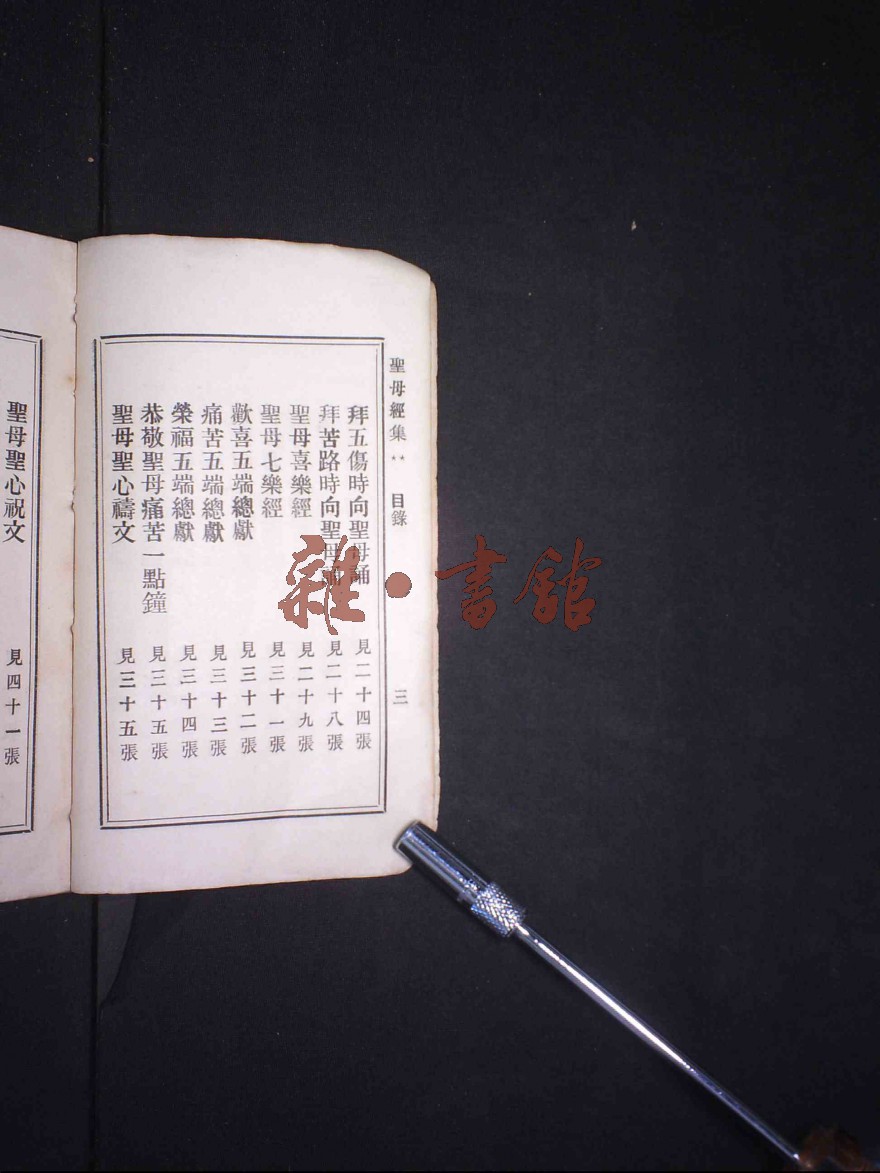 聖母經集 ** 目錄 三
拜五傷時向聖母誦 見二十四張
拜苦路時向聖母誦 見二十八張
聖母喜樂經 見二十九張
聖母七樂經 見三十一張
歡喜五端總獻 見三十二張
痛苦五端總獻 見三十三張
榮福五端總獻 見三十四張
恭敬聖母痛苦一點鐘 見三十五張
聖母聖心禱文 見三十五張
聖母聖心祝文 見四十一張
雜·書館